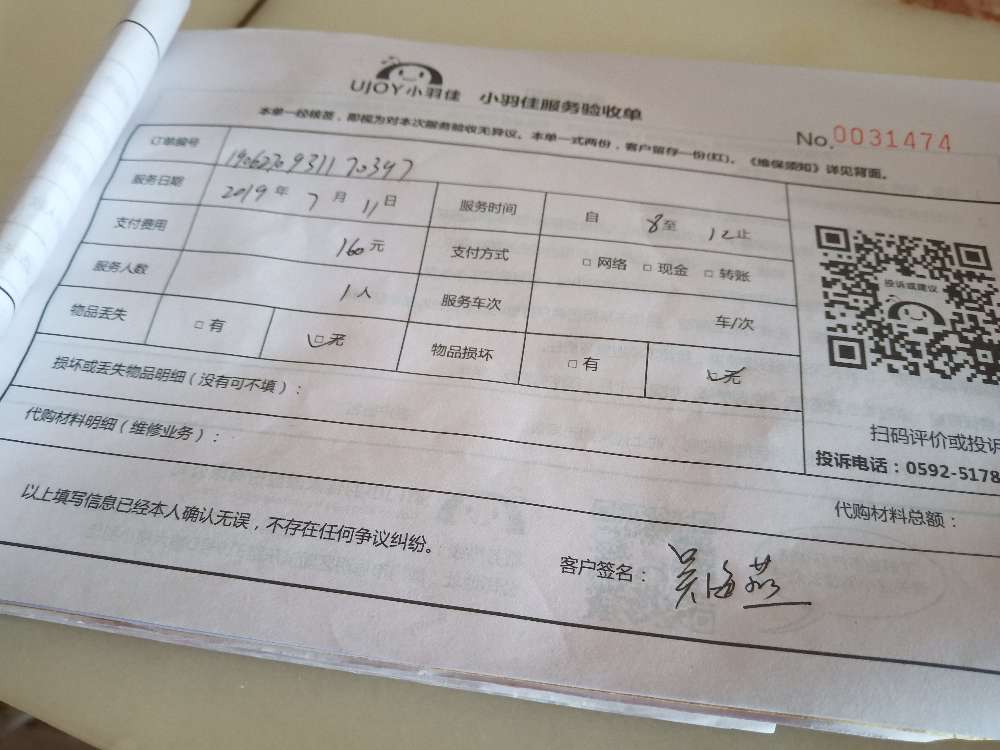 UJOY小羽佳 小羽佳服务验收单
本单一经核签，即视为对本次服务验收无异议。本单一式两份，客户留存一份(红)。《维保须知》详见背面。
No.0031474
订单编号 1906270931170347
服务日期 2019年7月11日 服务时间 自 8至 12止
支付费用 160元 支付方式 □ 网络 □ 现金 □ 转账
服务人数 1人 服务车次 车/次
物品丢失 □ 有 □ 无 物品损坏 □ 有 □ 无
损坏或丢失物品明细（没有可不填）：
代购材料明细（维修业务）：
投诉或建议
扫码评价或投诉
投诉电话：0592-5178
代购材料总额：
以上填写信息已经本人确认无误，不存在任何争议纠纷。
客户签名：吴海燕